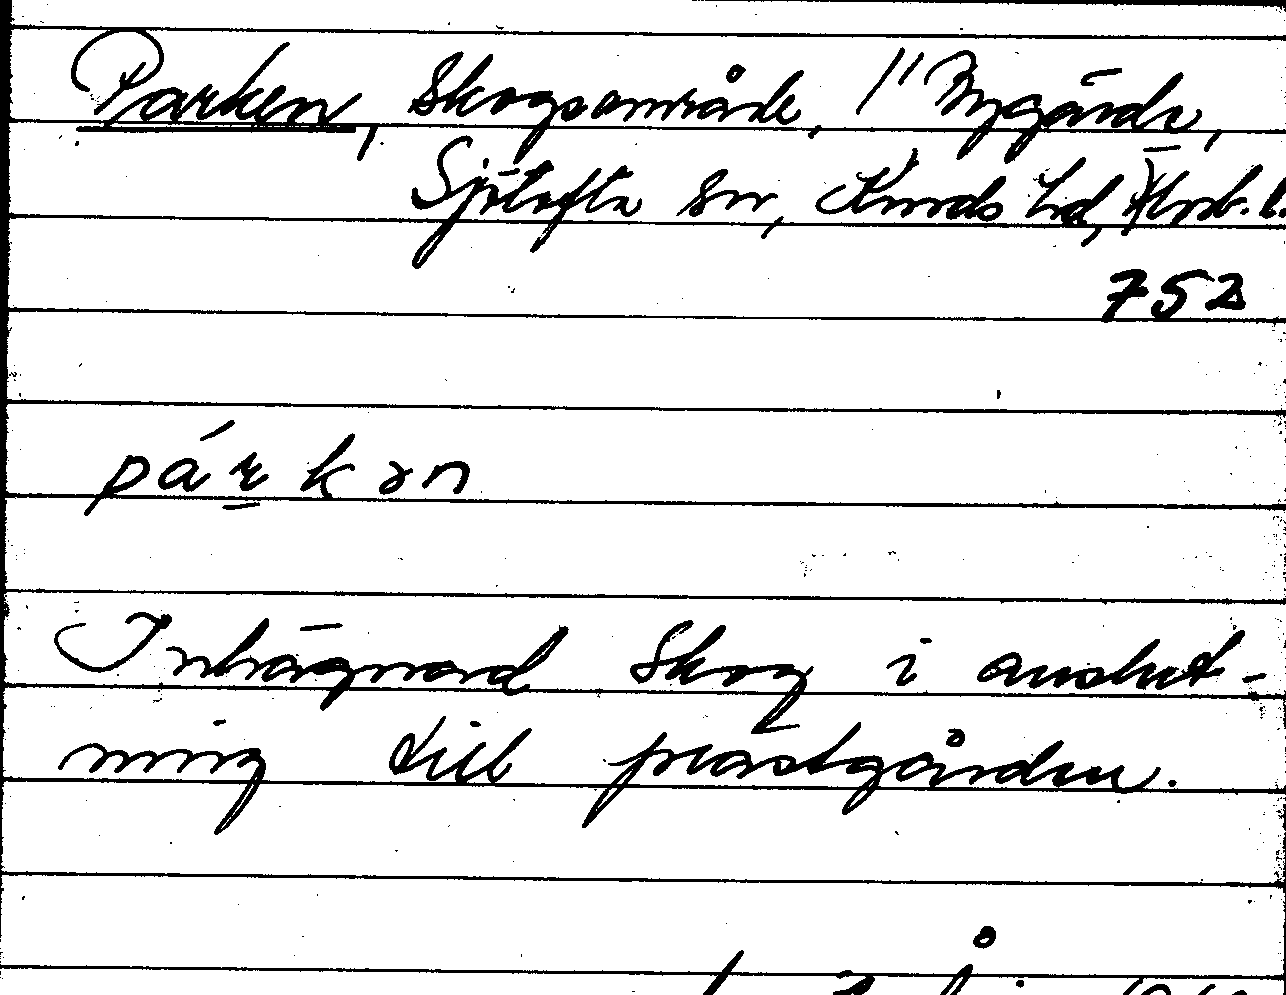 Parken, Skogsområde, 1" Nygärde,
Sjötofta sn, Kinds hd, Älvsb. l.
752
pá̱rkən
Inhägnad Skog i anslut-
ning till prästgården.